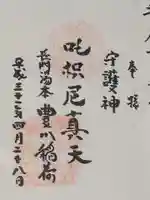 奉拝
守護神
吒枳尼真天
長門湯本 豊川稲荷
平成三十一年四月二十八日